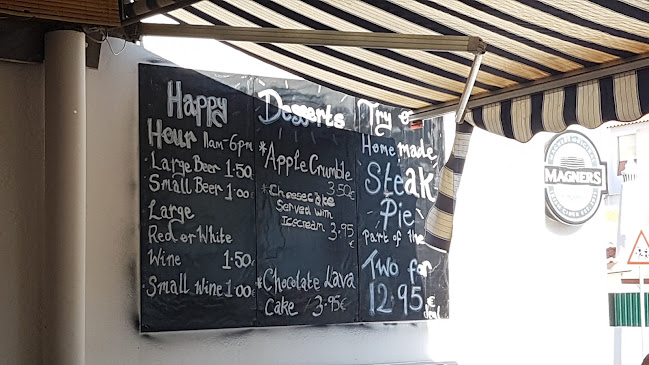 Happy
Hour 11am-6pm
Large Beer 1.50
Small Beer 1.00
Large
Red or White
Wine 1.50
Small Wine 1.00
Desserts
*Apple Crumble
3.50€
*Cheesecake
Served with
Icecream 3.95
€
*Chocolate Lava
Cake 3.95€
Try
Homemade
Steak
Pie
Part of the
Two for
12.95€
deal
MAGNERS